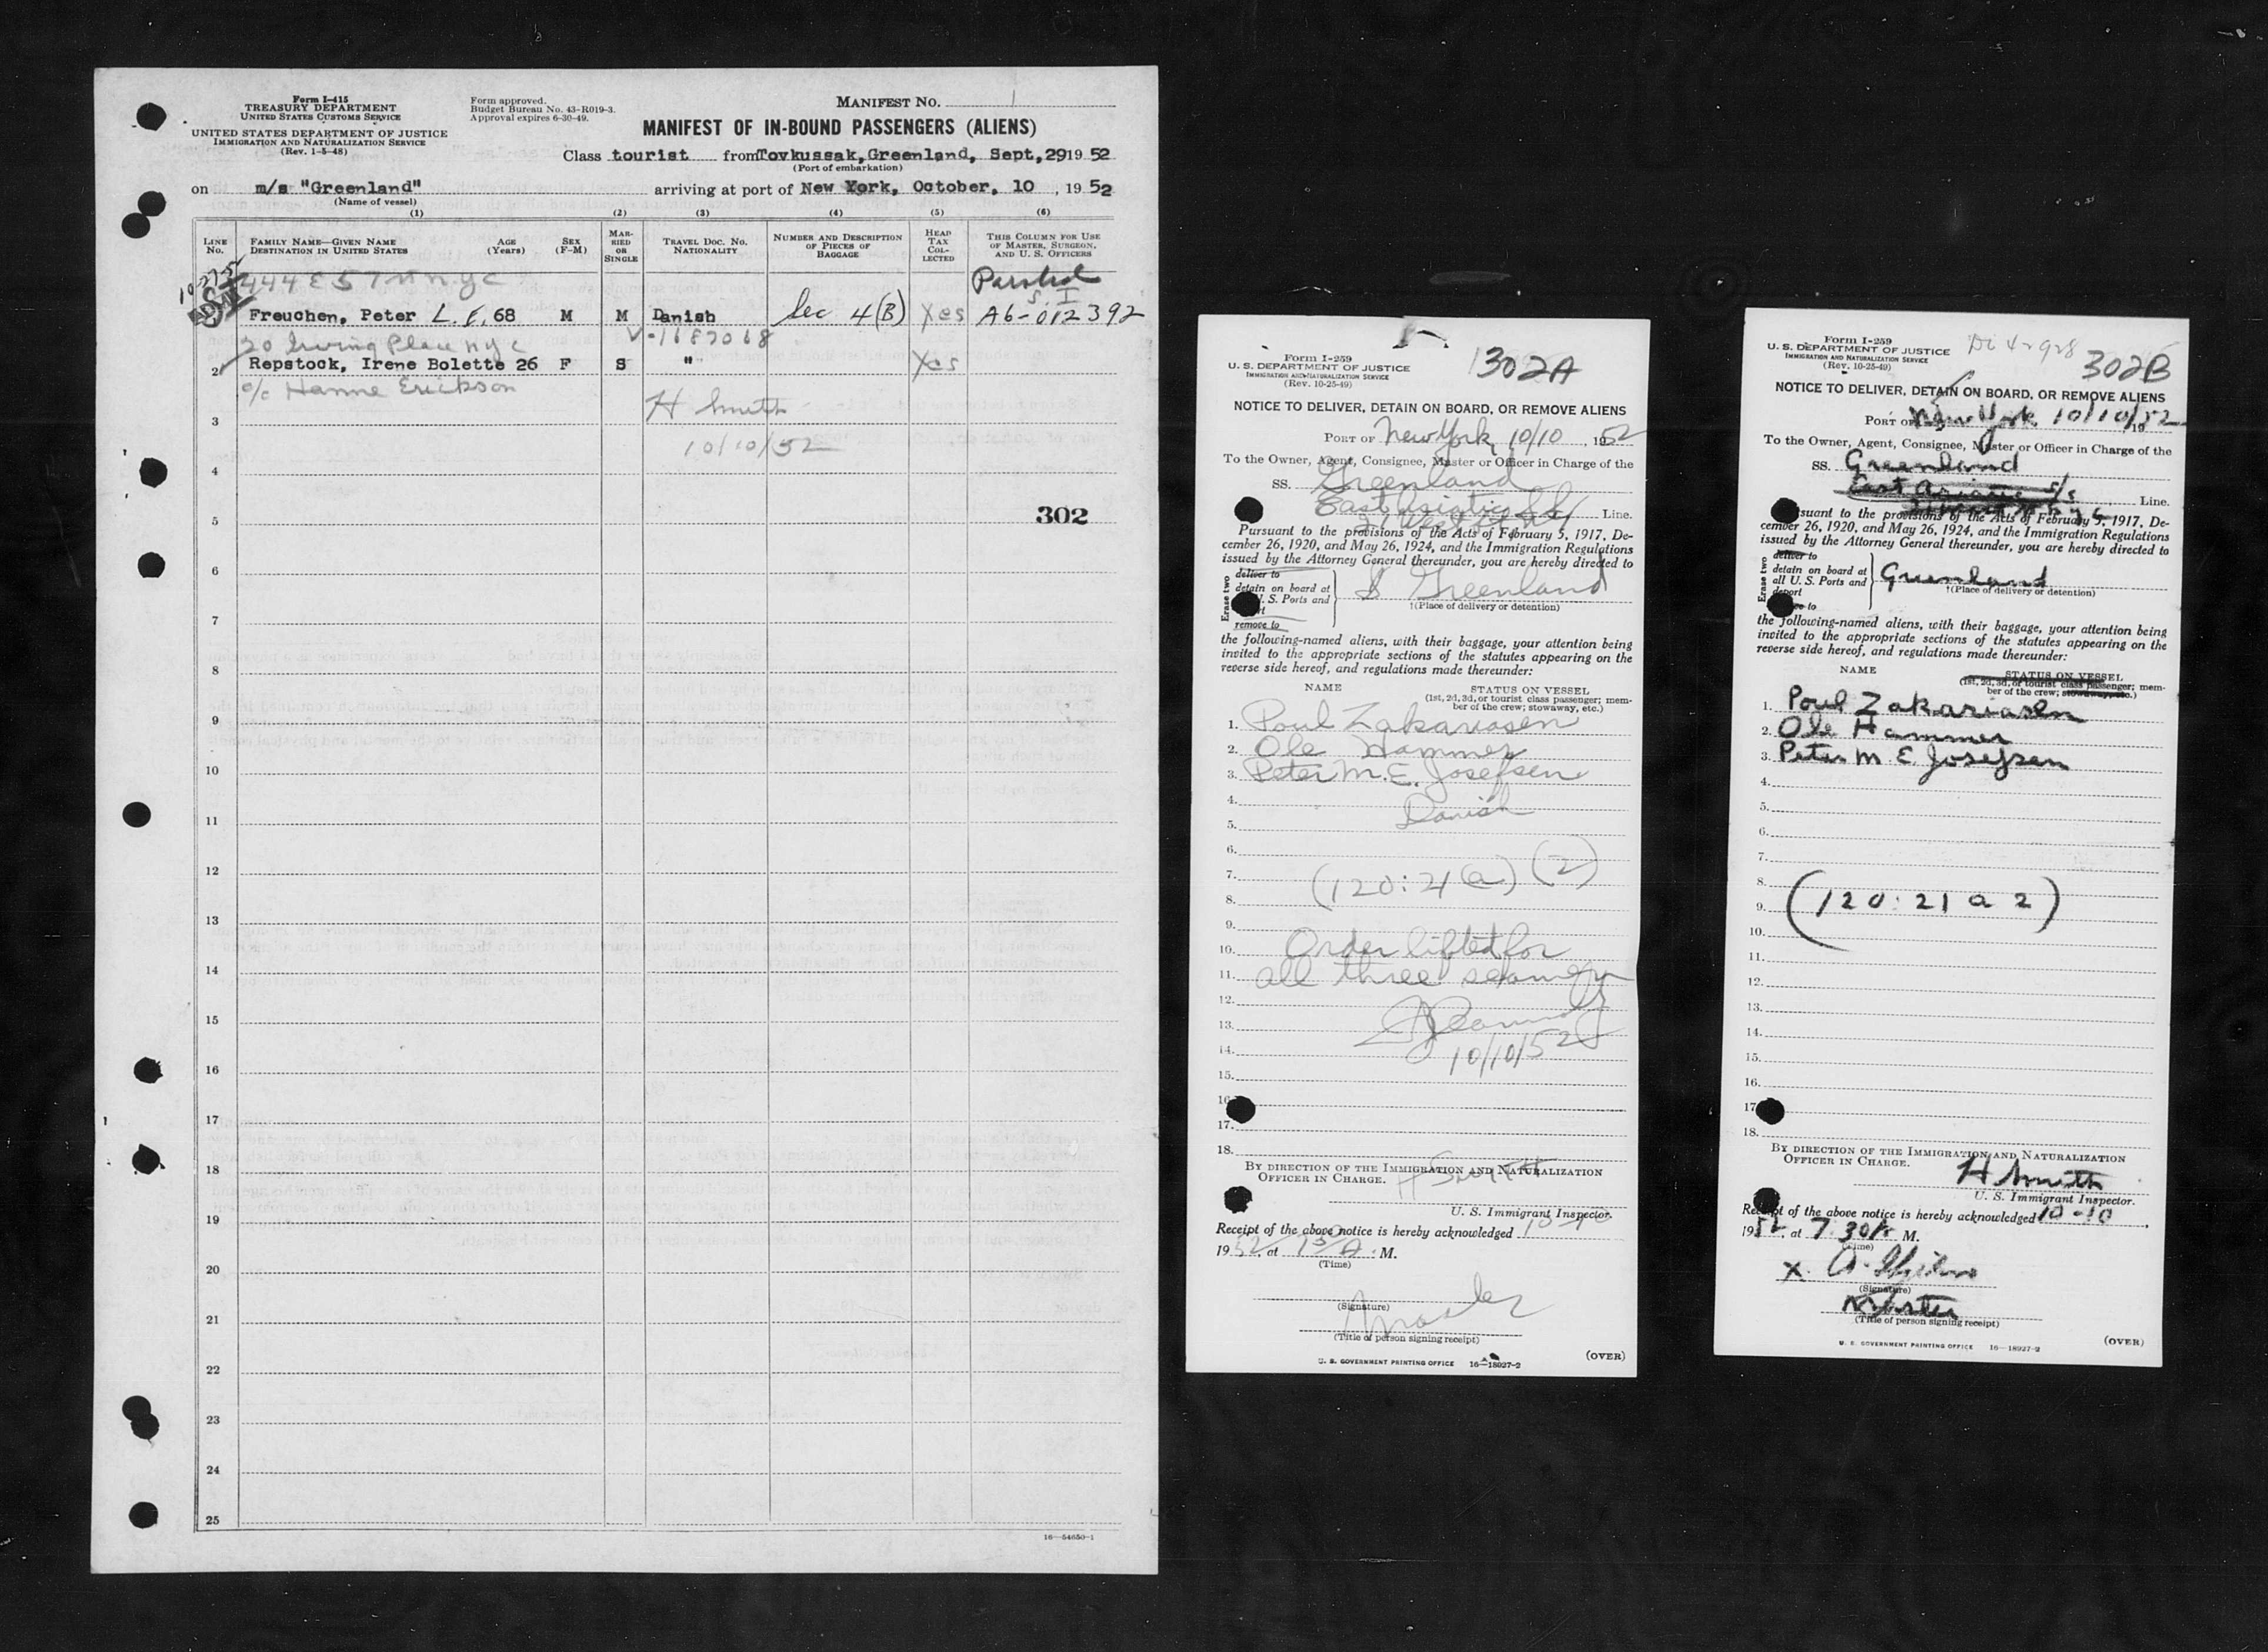 Form I-415
TREASURY DEPARTMENT
UNITED STATES CUSTOMS SERVICE
UNITED STATES DEPARTMENT OF JUSTICE
IMMIGRATION AND NATURALIZATION SERVICE
(Rev. 1-5-48)
Form approved.
Budget Bureau No. 43-R019-3.
Approval expires 6-30-49.
MANIFEST No. 1
MANIFEST OF IN-BOUND PASSENGERS (ALIENS)
Class tourist from Tovkussak, Greenland, Sept, 29 1952
(Port of embarkation)
on m/s "Greenland" arriving at port of New York, October, 10, 1952
(Name of vessel)
(1) (2) (3) (4) (5) (6)
LINE No.
FAMILY NAME—GIVEN NAME AGE
DESTINATION IN UNITED STATES (Years)
SEX (F-M)
MARRIED OR SINGLE
TRAVEL DOC. No. NATIONALITY
NUMBER AND DESCRIPTION OF PIECES OF BAGGAGE
HEAD TAX COLLECTED
THIS COLUMN FOR USE OF MASTER, SURGEON, AND U. S. OFFICERS
444 E 57 NYC
S. I
Freuchen, Peter L. F. 68 M M Danish Sec 4(B) Yes A6-012392
20 Irving Place NYC V-1687068
2 Repstock, Irene Bolette 26 F S " Yes
c/o Hanne Erickson
H Smith
3
10/10/52
4
5 302
6
7
8
9
10
11
12
13
14
15
16
17
18
19
20
21
22
23
24
25
16—54650-1
Form I-259
U. S. DEPARTMENT OF JUSTICE
IMMIGRATION AND NATURALIZATION SERVICE
(Rev. 10-25-49)
302A
NOTICE TO DELIVER, DETAIN ON BOARD, OR REMOVE ALIENS
PORT OF New York, 10/10, 1952
To the Owner, Agent, Consignee, Master or Officer in Charge of the
SS. Greenland
East Asiatic Line.
Pursuant to the provisions of the Acts of February 5, 1917, De-
cember 26, 1920, and May 26, 1924, and the Immigration Regulations
issued by the Attorney General thereunder, you are hereby directed to
Erase two
deliver to
detain on board at
S. Ports and
remove to
S Greenland
†(Place of delivery or detention)
the following-named aliens, with their baggage, your attention being
invited to the appropriate sections of the statutes appearing on the
reverse side hereof, and regulations made thereunder:
NAME STATUS ON VESSEL
(1st, 2d, 3d, or tourist class passenger; mem-
ber of the crew; stowaway, etc.)
1. Poul Zakariasen
2. Ole Hammer
3. Peter M. E. Josefsen
4.
Danish
5.
6.
7. (120:21(a)(2)
8.
9.
10. Order lifted for
11. all three seamen
12.
13.
14. 10/10/52
15.
16.
17.
18.
BY DIRECTION OF THE IMMIGRATION AND NATURALIZATION
OFFICER IN CHARGE. H Smith
U. S. Immigrant Inspector.
Receipt of the above notice is hereby acknowledged 10-10
1952, at A. M.
(Time)
(Signature)
Master
(Title of person signing receipt)
U. S. GOVERNMENT PRINTING OFFICE 16—18927-2
(OVER)
Form I-259
U. S. DEPARTMENT OF JUSTICE
IMMIGRATION AND NATURALIZATION SERVICE
(Rev. 10-25-49)
302B
NOTICE TO DELIVER, DETAIN ON BOARD, OR REMOVE ALIENS
PORT OF New York 10/10/52 19
To the Owner, Agent, Consignee, Master or Officer in Charge of the
SS. Greenland
East Asiatic S/S Line.
suant to the provisions of the Acts of February 5, 1917, De-
cember 26, 1920, and May 26, 1924, and the Immigration Regulations
issued by the Attorney General thereunder, you are hereby directed to
Erase two
deliver to
detain on board at
all U. S. Ports and
deport
Greenland
†(Place of delivery or detention)
the following-named aliens, with their baggage, your attention being
invited to the appropriate sections of the statutes appearing on the
reverse side hereof, and regulations made thereunder:
NAME STATUS ON VESSEL
(1st, 2d, 3d, or tourist class passenger; mem-
ber of the crew; stowaway, etc.)
1. Poul Zakariasen
2. Ole Hammer
3. Peter M. E. Josefsen
4.
5.
6.
7.
8.
9. (120:21 a 2)
10.
11.
12.
13.
14.
15.
16.
17
18.
BY DIRECTION OF THE IMMIGRATION AND NATURALIZATION
OFFICER IN CHARGE.
H Smith
U. S. Immigrant Inspector.
Receipt of the above notice is hereby acknowledged 10-10,
1952, at 7:30 A. M.
(Time)
X. A.
(Signature)
Master
(Title of person signing receipt)
U. S. GOVERNMENT PRINTING OFFICE 16—18927-2
(OVER)